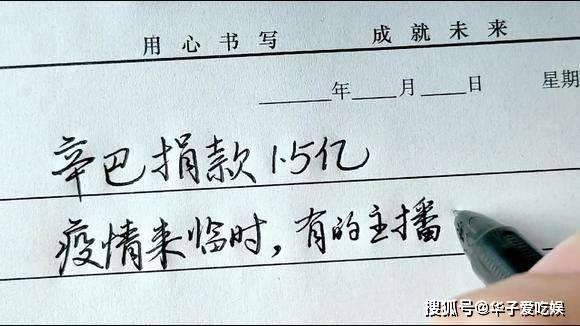 用心书写 成就未来
____年____月____日 星期
辛巴捐款1.5亿
疫情来临时，有的主播
搜狐号@华子爱吃娱